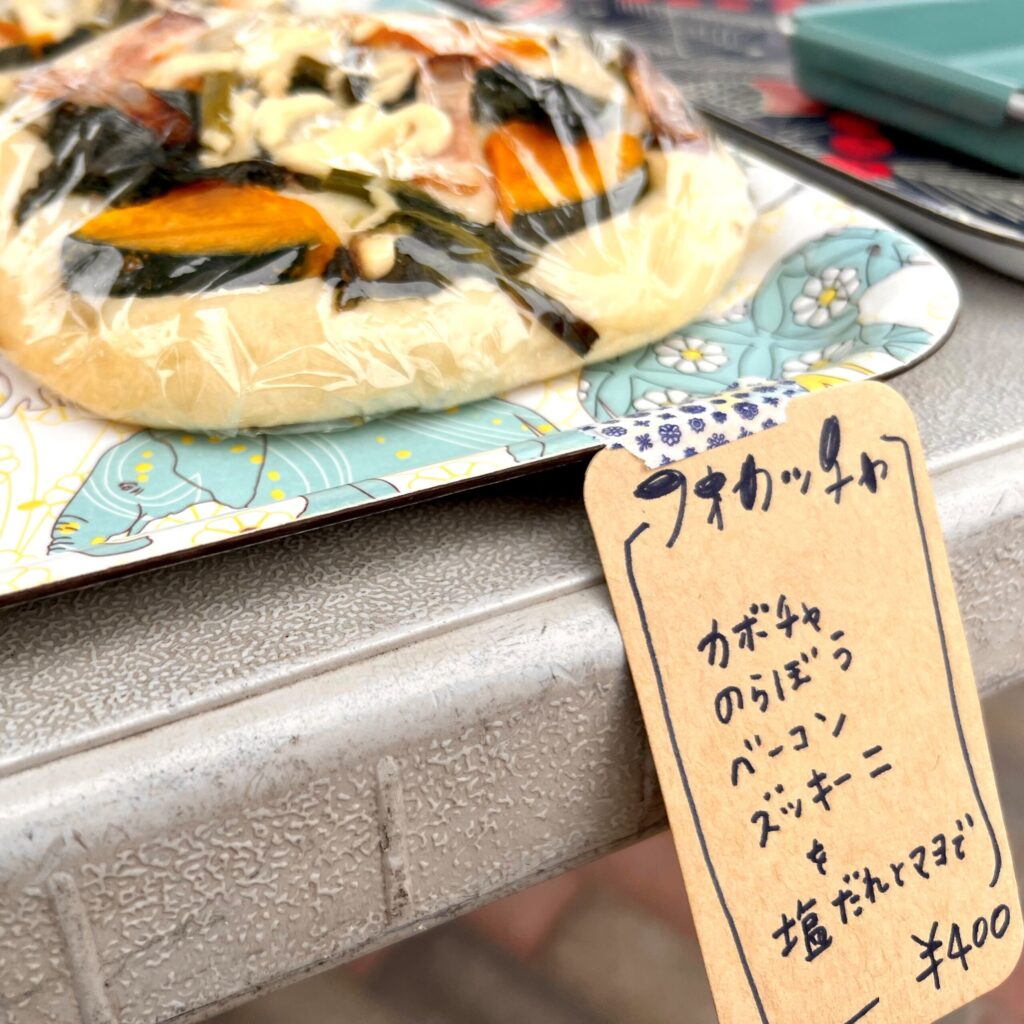 フォカッチャ
カボチャ
のらぼう
ベーコン
ズッキーニ
&
塩だれとマヨで
¥400